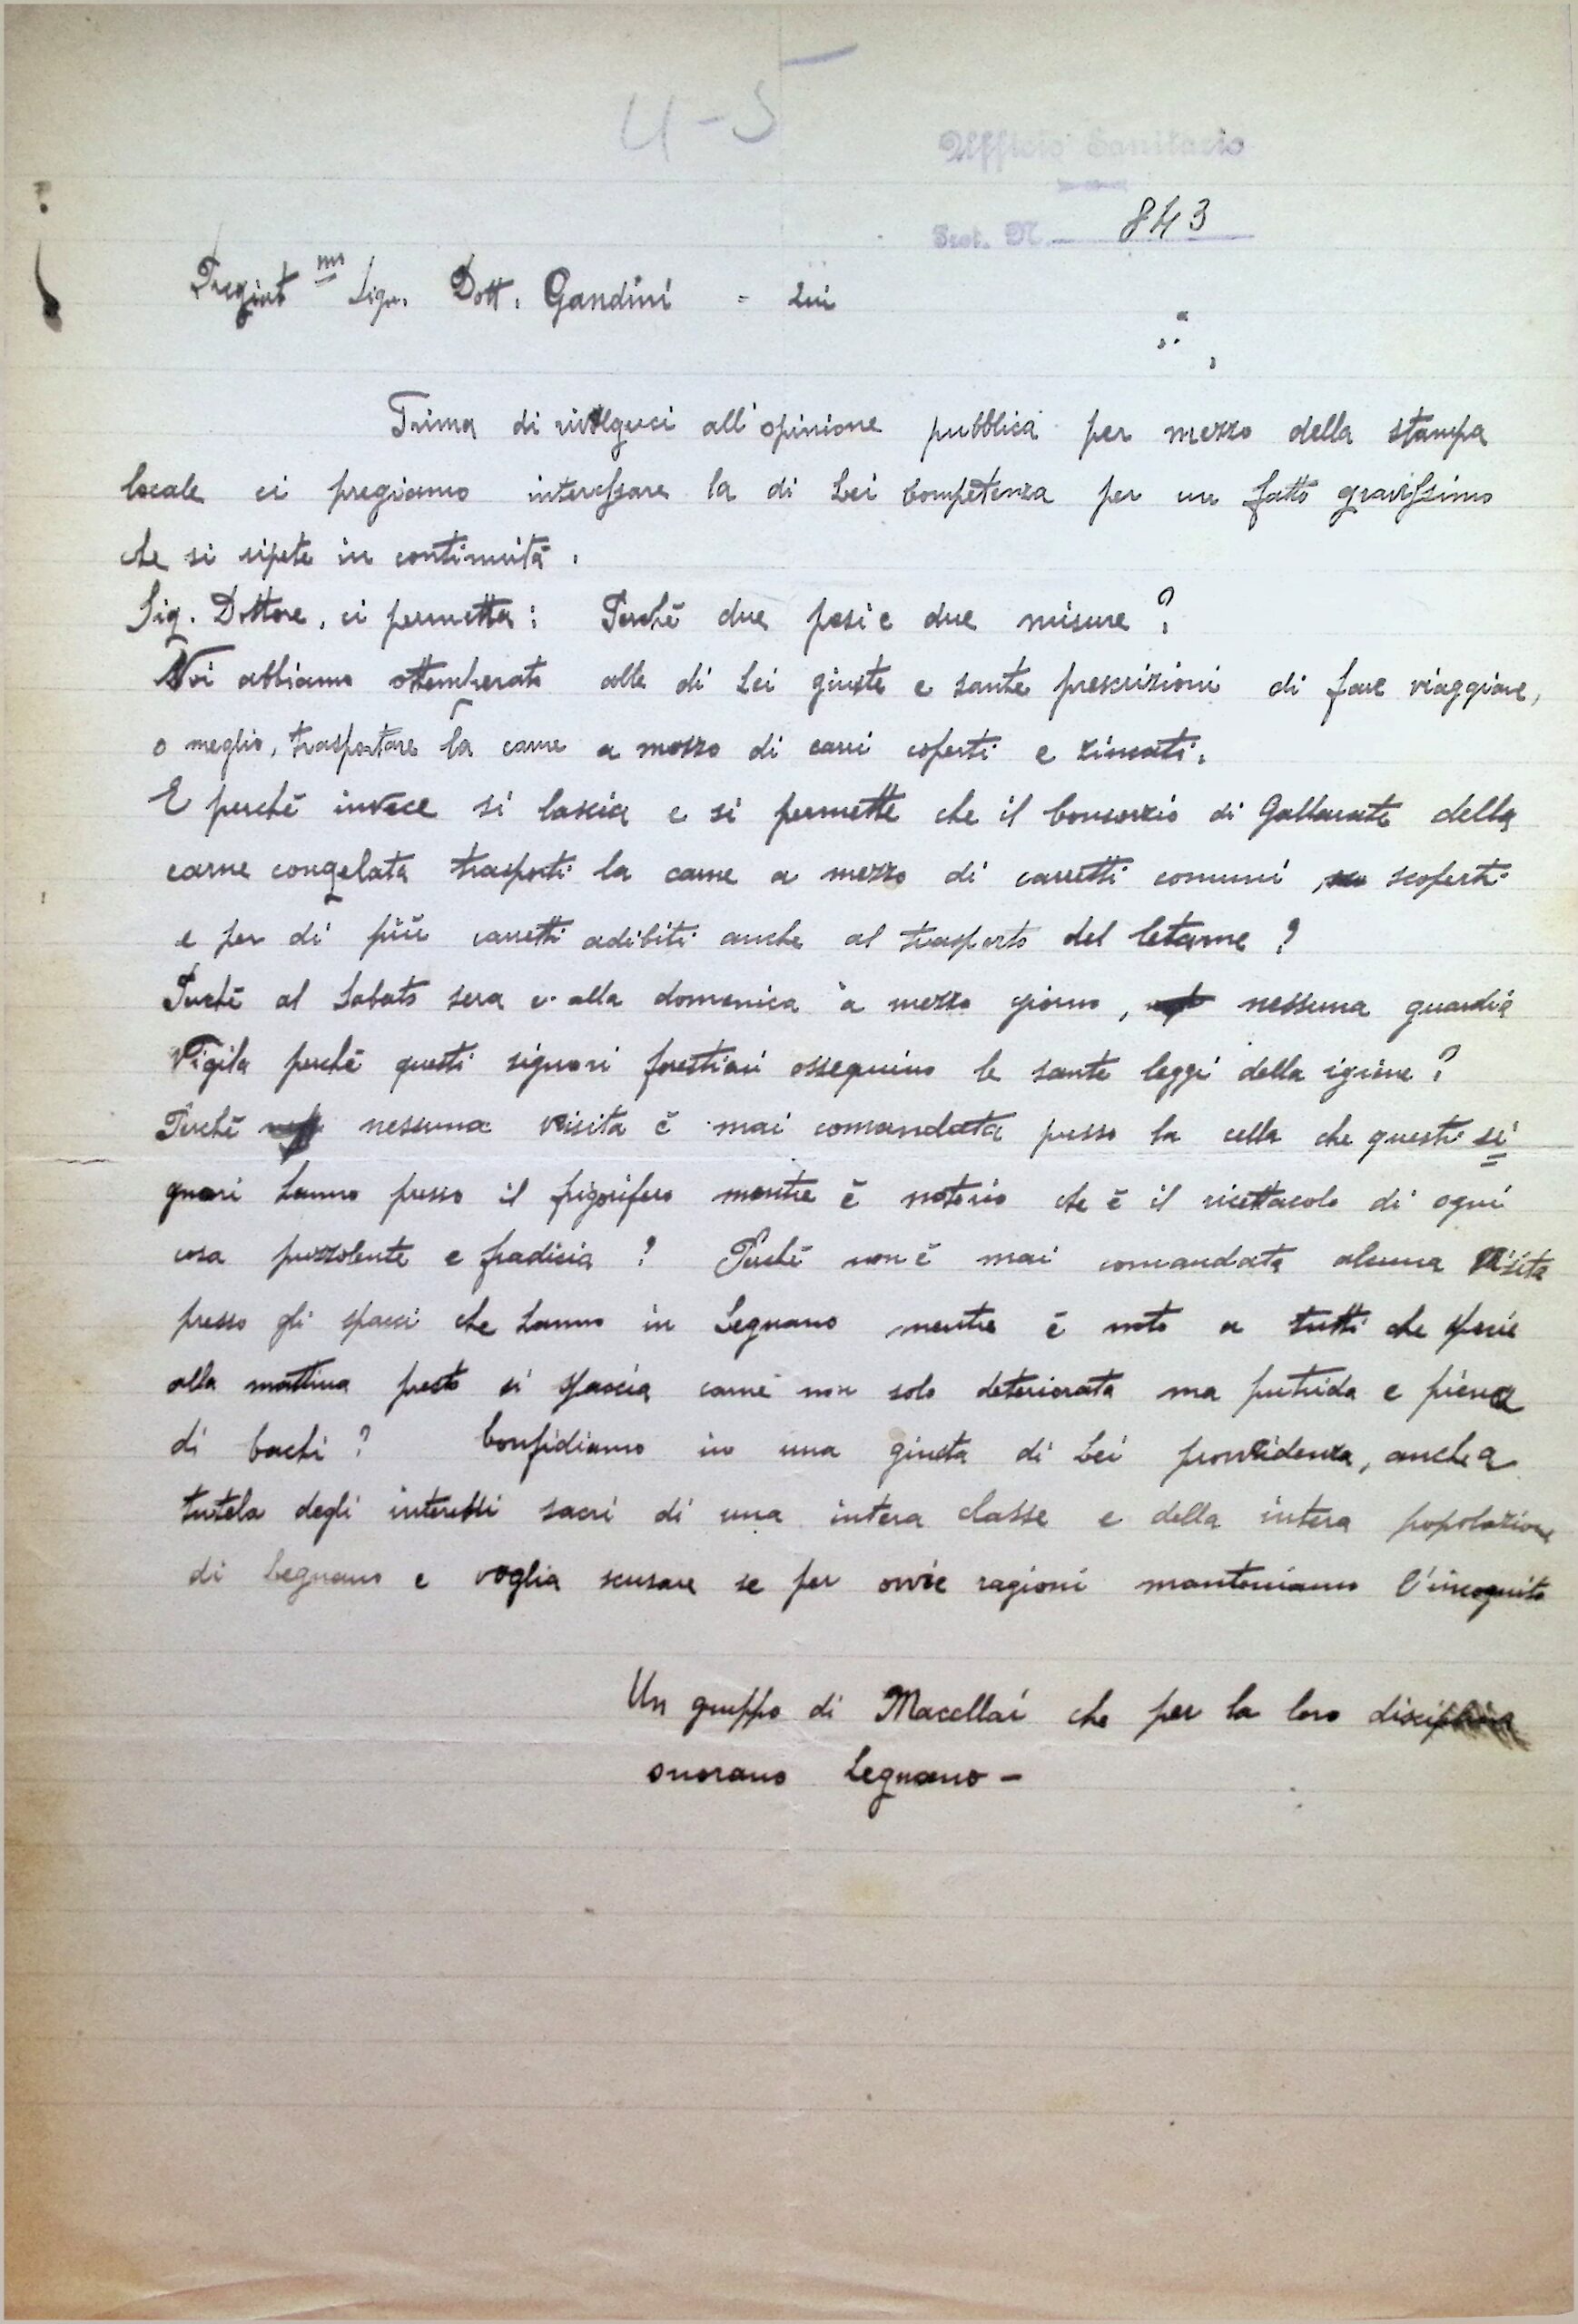 4-5
Ufficio Sanitario
Prot. N. 843
Pregiat mo Sign. Dott. Gandini = Lui
Prima di rivolgerci all'opinione pubblica per mezzo della stampa
locale ci pregiamo interessare la di Lei competenza per un fatto gravissimo
che si ripete in continuità.
Sig. Dottore, ci permetta: Perchè due pesi e due misure?
Noi abbiamo ottemperato alle di Lei giuste e sante prescrizioni di fare viaggiare,
o meglio, trasportare la carne a mezzo di carri coperti e zincati.
E perchè invece si lascia e si permette che il Consorzio di Gallarate della
carne congelata trasporti la carne a mezzo di carretti comuni, scoperti
e per di più carretti adibiti anche al trasporto del letame?
Perchè al Sabato sera e alla domenica a mezzo giorno, nessuna guardia
Vigila perchè questi signori forestieri ossequino le sante leggi della igiene?
Perchè nessuna visita è mai comandata presso la cella che questi si
gnori hanno presso il frigorifero mentre è notorio che è il ricettacolo di ogni
cosa puzzolente e fradicia? Perchè non è mai comandata alcuna visita
presso gli spacci che hanno in Legnano mentre è noto a tutti che specie
alla mattina presto si spaccia carne non solo deteriorata ma putrida e piena
di bachi? Confidiamo in una giusta di Lei provvidenza, anche a
tutela degli interessi sacri di una intera classe e della intera popolazione
di Legnano e voglia scusare se per ovvie ragioni manteniamo l'incognito
Un gruppo di Macellai che per la loro disciplina
onorano Legnano -